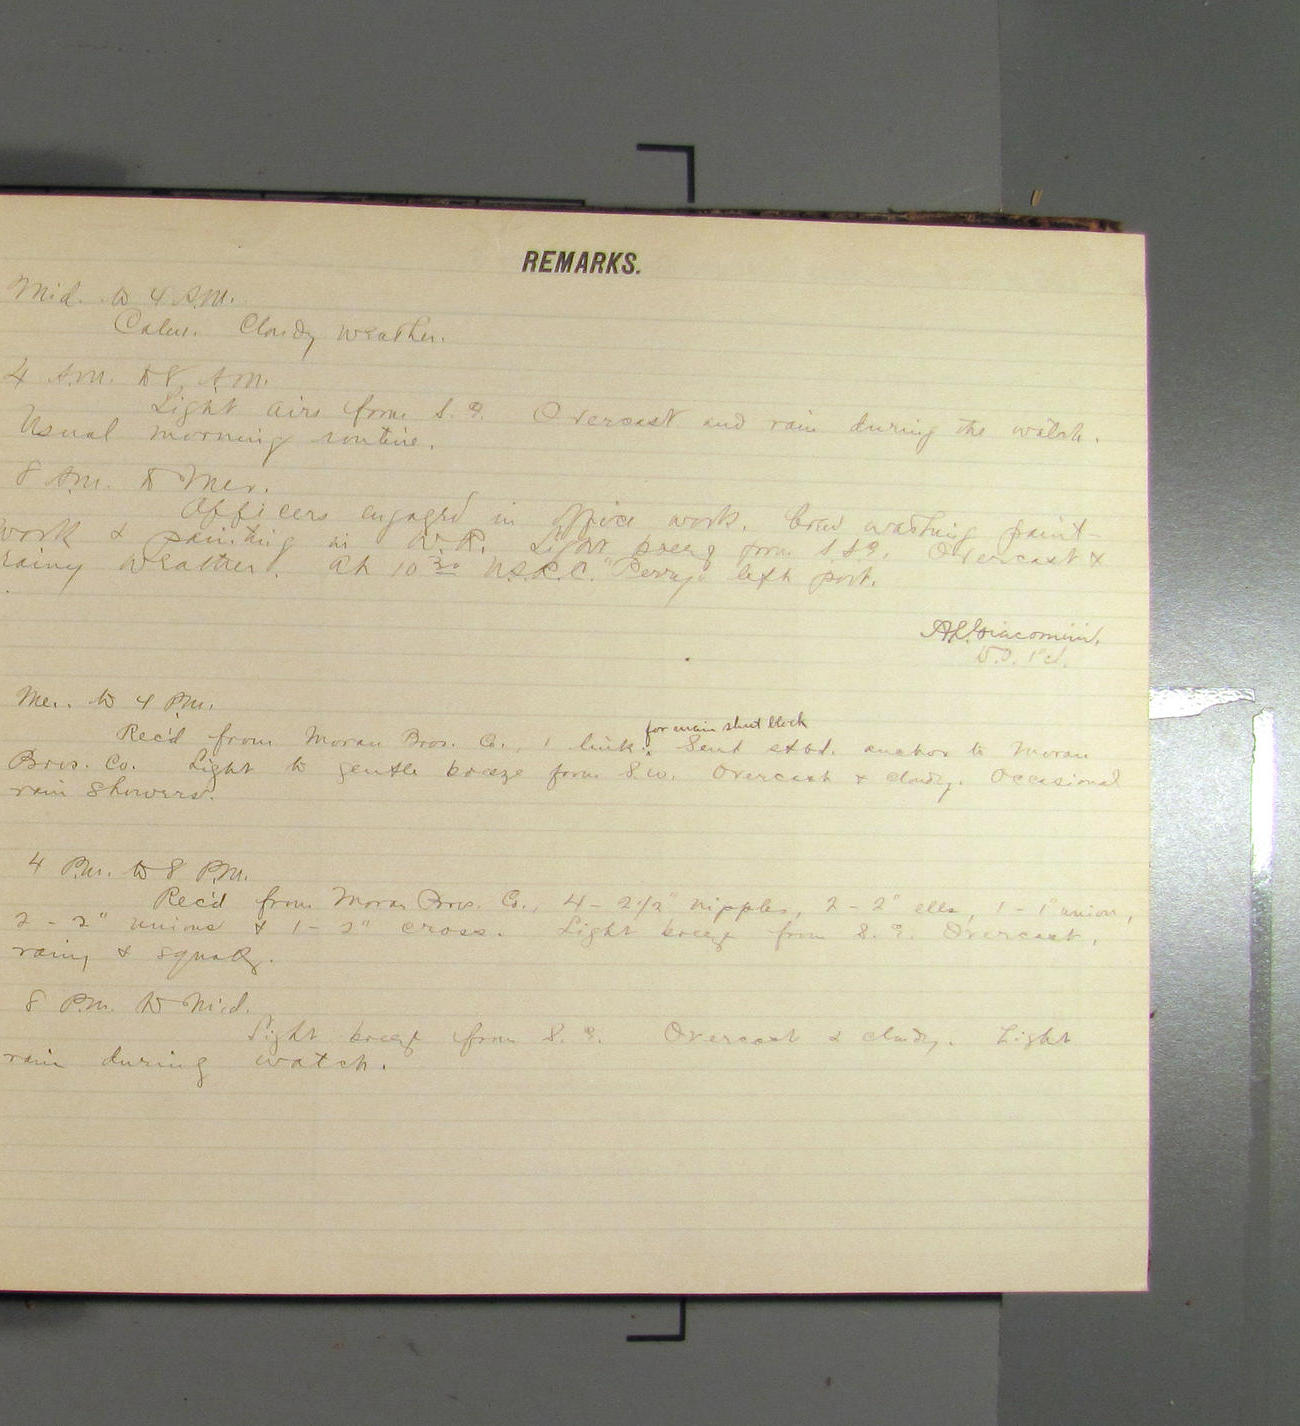 REMARKS.
Mid. to 4 A.M.
Calm. Cloudy weather.
4 A.M. to 8 A.M.
Light airs from S.E. Overcast and rain during the watch.
Usual morning routine.
8 A.M. to Mer.
Officers engaged in office work. Crew washing paint-
work & painting in W.R. Light breeze from S.S.E. Overcast &
rainy weather. At 10 30 U.S.R.C. "Perry" left port.
A.L. Giacomini.
Mer. to 4 P.M.
for main sheet block
Rec'd from Moran Bros. Co., 1 link. Sent stbd. anchor to Moran
Bros. Co. Light to gentle breeze from S.W. Overcast & cloudy. Occasional
rain showers.
4 P.M. to 8 P.M.
Rec'd from Moran Bros. Co., 4 - 2 1/2" nipples, 2 - 2" ells, 1 - 1" union,
2 - 2" unions & 1 - 2" cross. Light breeze from S.E. Overcast,
rainy & squally.
8 P.M. to Mid.
Light breeze from S.E. Overcast & cloudy. Light
rain during watch.